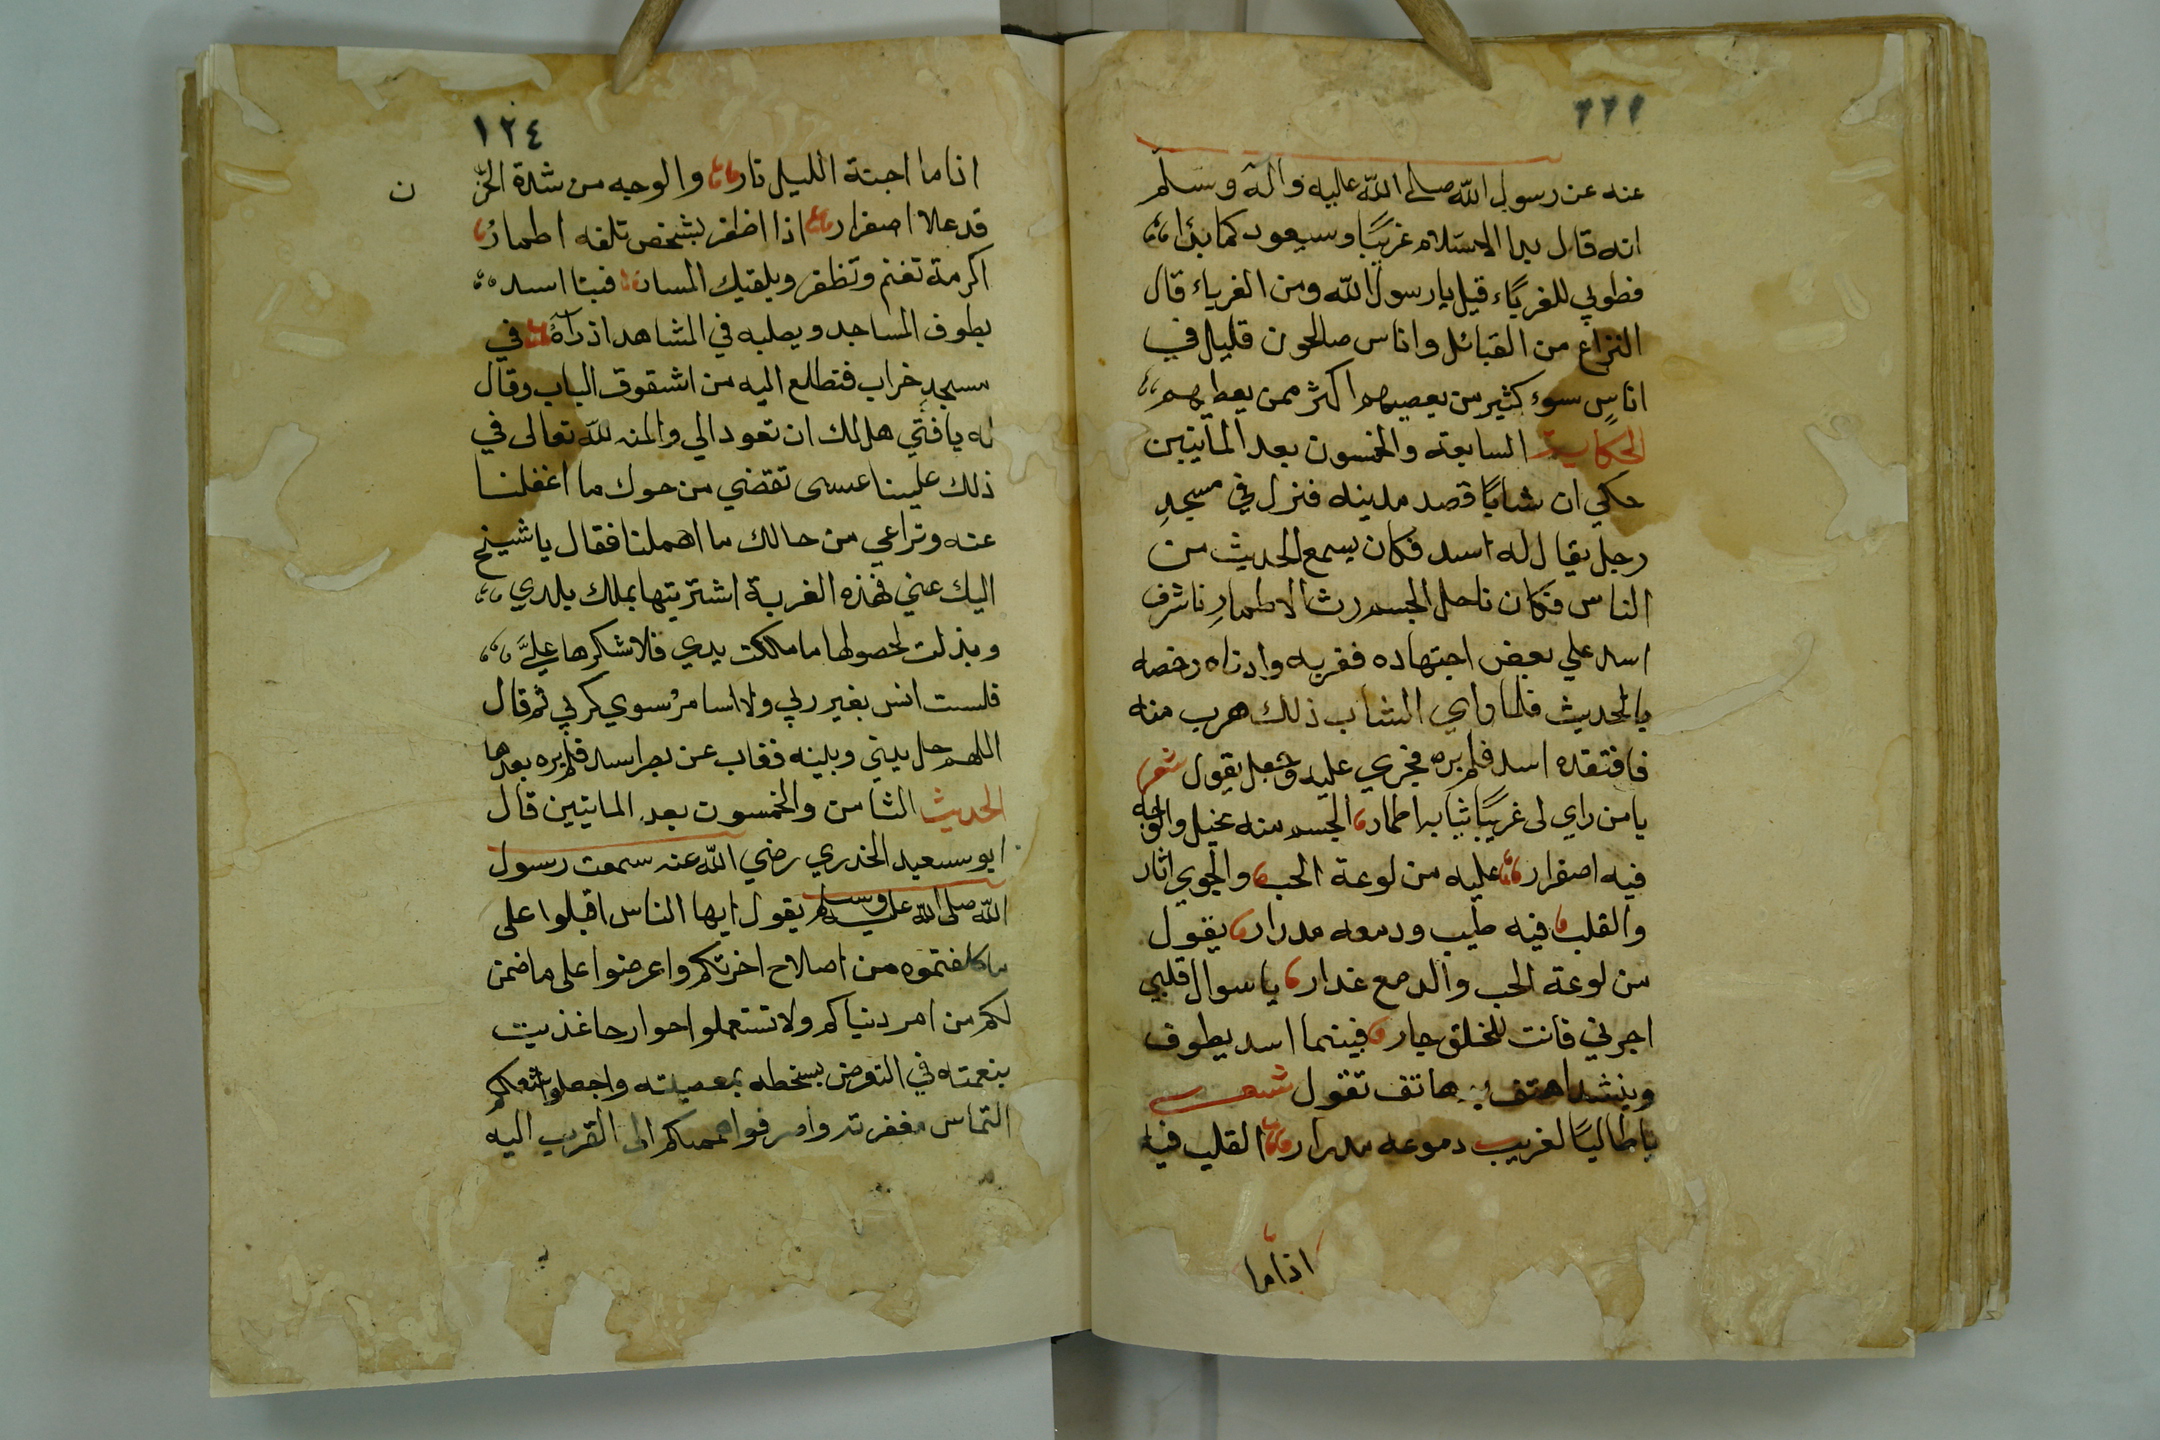 عنه عن رسول الله صلى الله عليه واله وسلم
انه قال بدا الاسلام غريبًا وسيعود كما بدا
فطوبي للغرباء قيل يا رسول الله ومن الغرباء قال
النزاع من القبائل واناس صالحون قليل في
اناسٍ سوء كثير من يعصيهم اكثر ممن يعطيهم
الحكاية السابعة والخمسون بعد المايتين
حكي ان شابًا قصد مدينه فنزل في مسجدِ
رجل يقال له اسد فكان يسمع الحديث من
الناس فكان ناحل الجسم رث الاطمارِ فاشرف
اسد علي بعض اجتهاده فقربه وادناه وخصه
بالحديث فلما راي الشاب ذلك هرب منه
فافتقده اسد فلم يره فجري عليه وجعل يقول شعر
يا من راي لى غريبًا ثيابه اطمار الجسم منه نحيل والوجه
فيه اصفرار عليه من لوعة الحب والجوي اثار
والقلب فيه طيب ودمعه مدرار يقول
من لوعة الحب والدمع غدار يا سوال قلبي
اجرني فانت للخلق جار فبينما اسد يطوف
وينشد اهتف به هاتف تقول شعر
يا طالبًا لغريب دموعه مدرار القلب فيه
اذا ما
١٢٤
اذا ما اجنة الليل نار والوجه من شدة الحز
ن
قد علا اصفرار اذا اظفر بشخص تلفه اطمارُ
اكرمة تغنم وتظفر ويلقيك المسار فبينا اسد
يطوف المساجد ويطلبه في المشاهد اذ راَهُ في
مسجدِ خراب فتطلع اليه من اشقوق الباب وقال
له يا فتي هل لك ان تعود الي والمنه لله تعالى في
ذلك علينا عسى تقضي من حوك ما اغفلنا
عنه وتراعي من حالك ما اهملنا فقال يا شيخ
اليك عني فهذه الغربة اشتريتها بملك بلدي
وبذلت لحصولها ما ملكت يدي فلا شكرها عليَّ
فلست انس بغير ربي ولا اسامرُ سوي كربي ثم قال
اللهم حل بيني وبينه فغاب عن بصر اسد فلم يره بعدها
الحديث الثامن والخمسون بعد المايتين قال
ابو سعيد الخدري رضي الله عنه سمعت رسول
الله صلى الله عليه وسلم يقول ايها الناس اقبلوا على
ما كلفتموه من اصلاح اخرتكم واعرضوا على ما ضمن
لكم من امر دنياكم ولا تستعملوا جوارحا غذيت
بنعمته في التعرض بسخطه بمعصيته واجعلوا شغلكم
التماس مغفرته واصرفوا هممكم الى القرب اليه